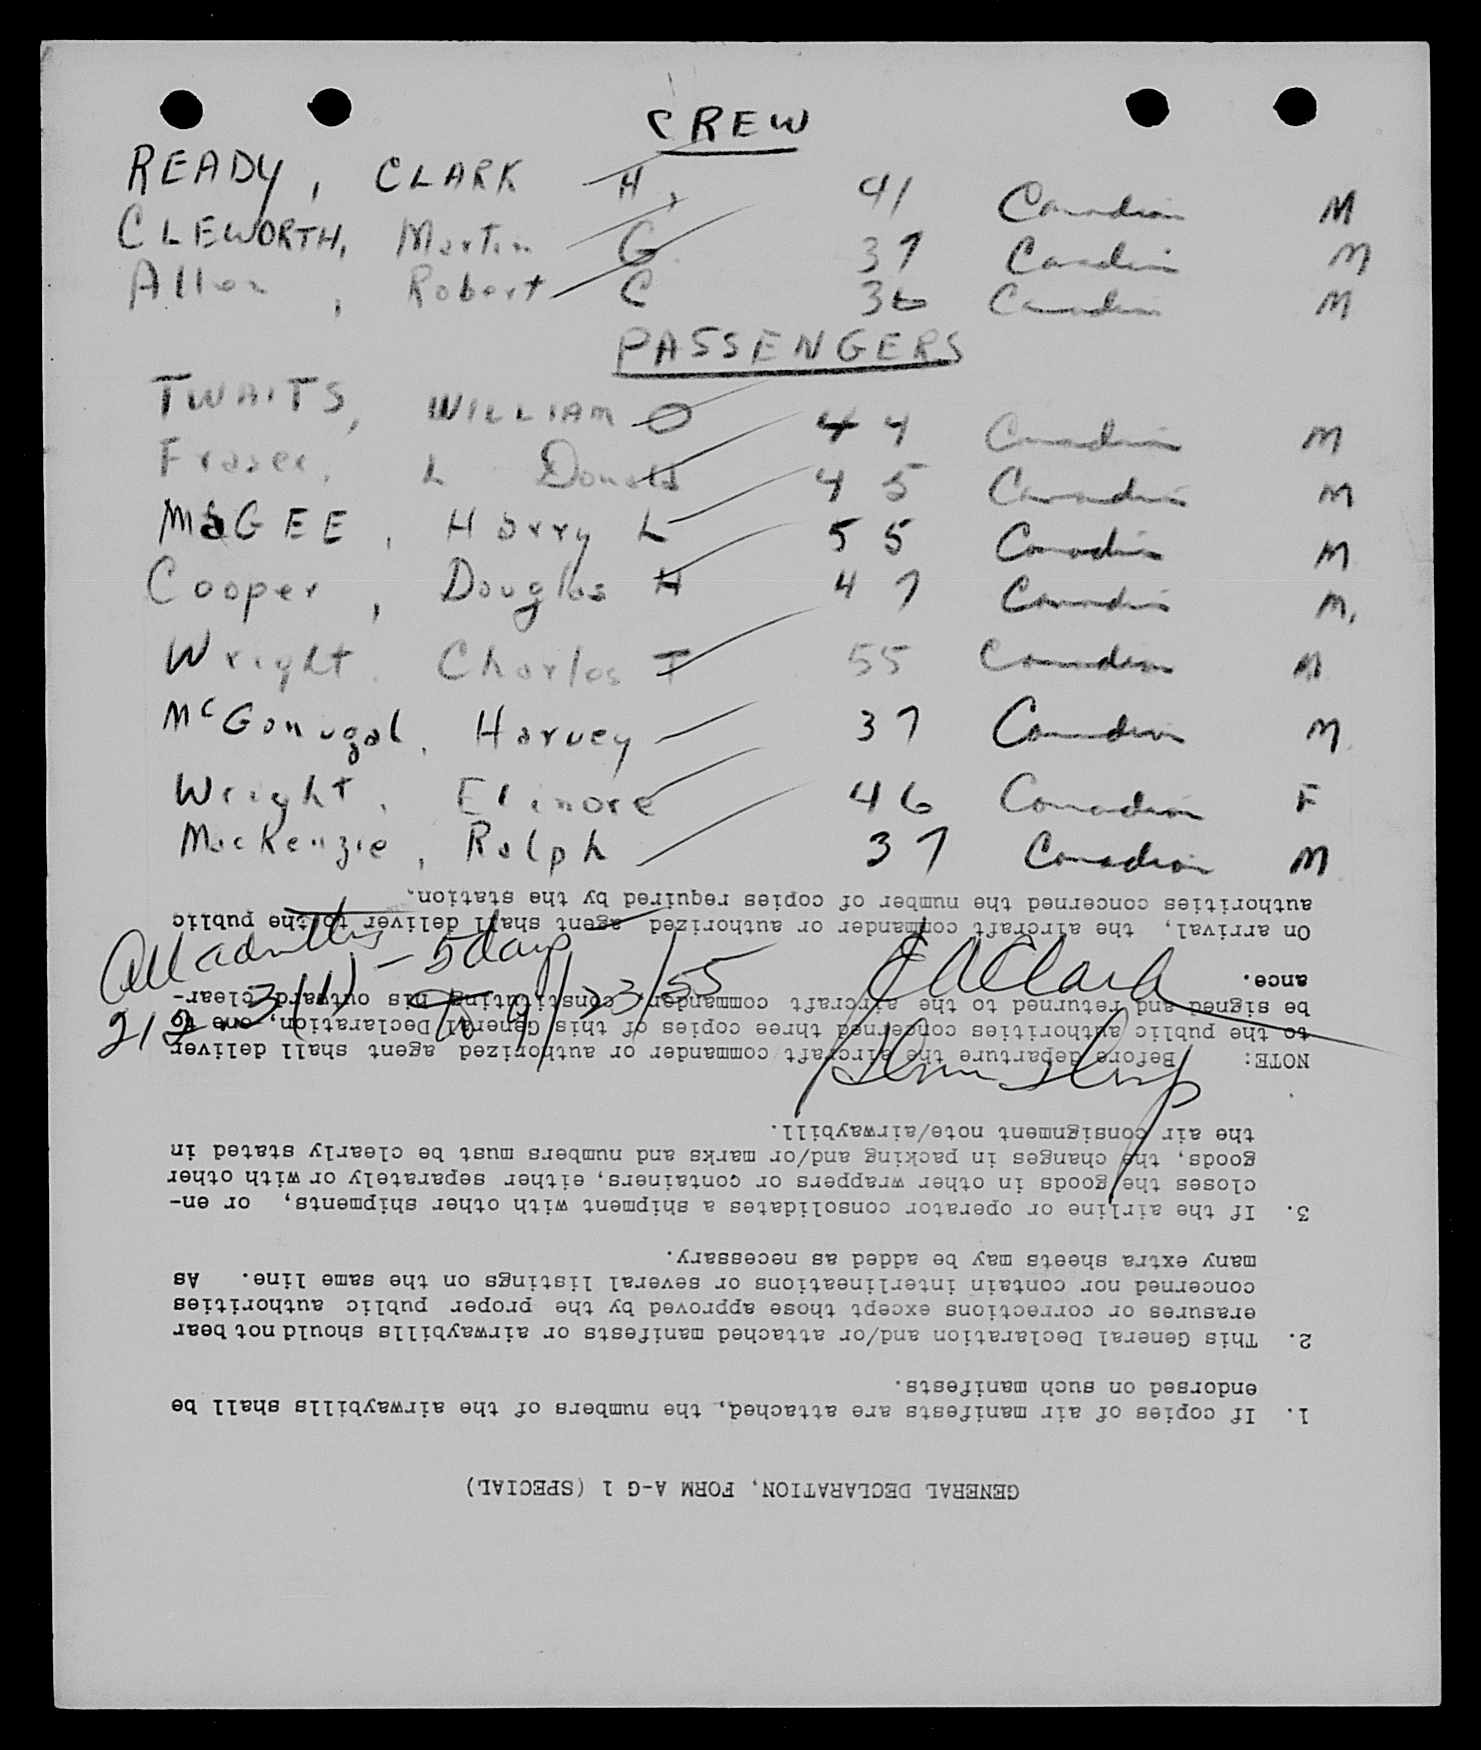 CREW
READY, CLARK H, 41 Canadian M
CLEWORTH, Martin G. 37 Canadian M
Allen, Robert C 36 Canadian M
PASSENGERS
TWAITS, WILLIAM O 44 Canadian M
Fraser, L Donald 45 Canadian M
McGEE, Harry L 55 Canadian M
Cooper, Douglas H 47 Canadian M.
Wright. Charles T 55 Canadian M
McGonugal, Harvey 37 Canadian M.
Wright, Elinore 46 Canadian F
MacKenzie, Ralph 37 Canadian M
All admitted - 5 days
212.3(1) 9/23/55
GENERAL DECLARATION, FORM A-G 1 (SPECIAL)
1. If copies of air manifests are attached, the numbers of the airwaybills shall be
endorsed on such manifests.
2. This General Declaration and/or attached manifests or airwaybills should not bear
erasures or corrections except those approved by the proper public authorities
concerned nor contain interlineations or several listings on the same line. As
many extra sheets may be added as necessary.
3. If the airline or operator consolidates a shipment with other shipments, or en-
closes the goods in other wrappers or containers, either separately or with other
goods, the changes in packing and/or marks and numbers must be clearly stated in
the air consignment note/airwaybill.
NOTE: Before departure the aircraft commander or authorized agent shall deliver
to the public authorities concerned three copies of this General Declaration, one to
be signed and returned to the aircraft commander, constituting his outward clear-
ance.
On arrival, the aircraft commander or authorized agent shall deliver to the public
authorities concerned the number of copies required by the station.